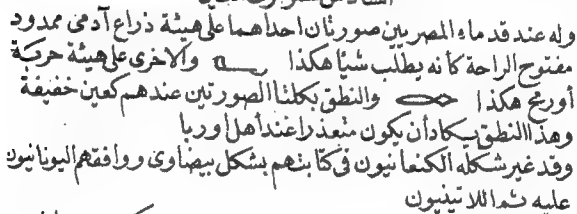 وله عند قدماء المصريين صورتان احداهما على هيئة ذراع آدمى ممدود
مفتوح الراحة كأنه يطلب شيئا هكذا والاخرى على هيئة حربة
أو رمح هكذا والنطق بكلتا الصورتين عندهم كعين خفيفة
وهذا النطق يكاد أن يكون متعذرا عند أهل أوربا
وقد غير شكله الكنعانيون فى كتابتهم بشكل بيضاوى ووافقهم اليونانيون
عليه ثم اللاتينيون